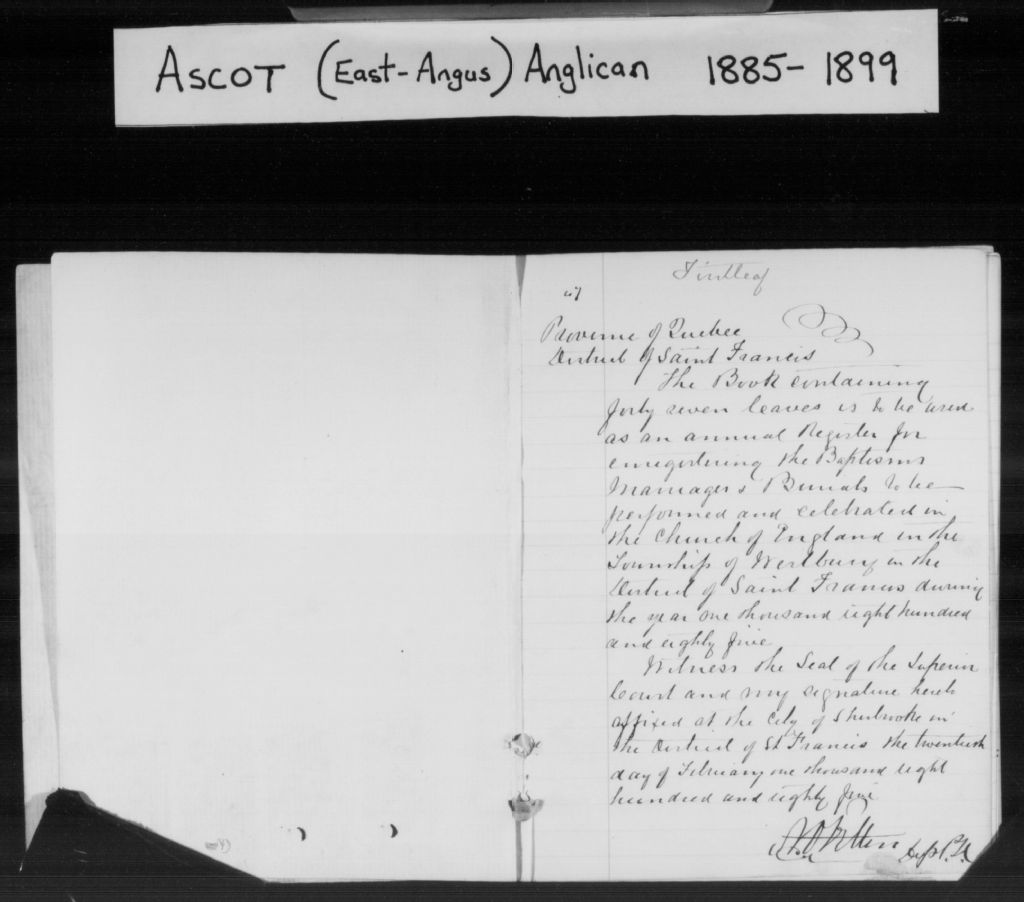 ASCOT (East-Angus) Anglican 1885-1899
First leaf
47
Province of Quebec
District of Saint Francis
The Book containing
forty seven leaves is to be used
as an annual Register for
enregistering the Baptisms
Marriages & Burials to be
performed and celebrated in
the Church of England in the
Township of Westbury in the
District of Saint Francis during
the year one thousand eight hundred
and eighty five
Witness the Seal of the Superior
Court and my signature hereto
affixed at the City of Sherbrooke in
the District of St Francis the twentieth
day of February one thousand eight
hundred and eighty five
Dep.